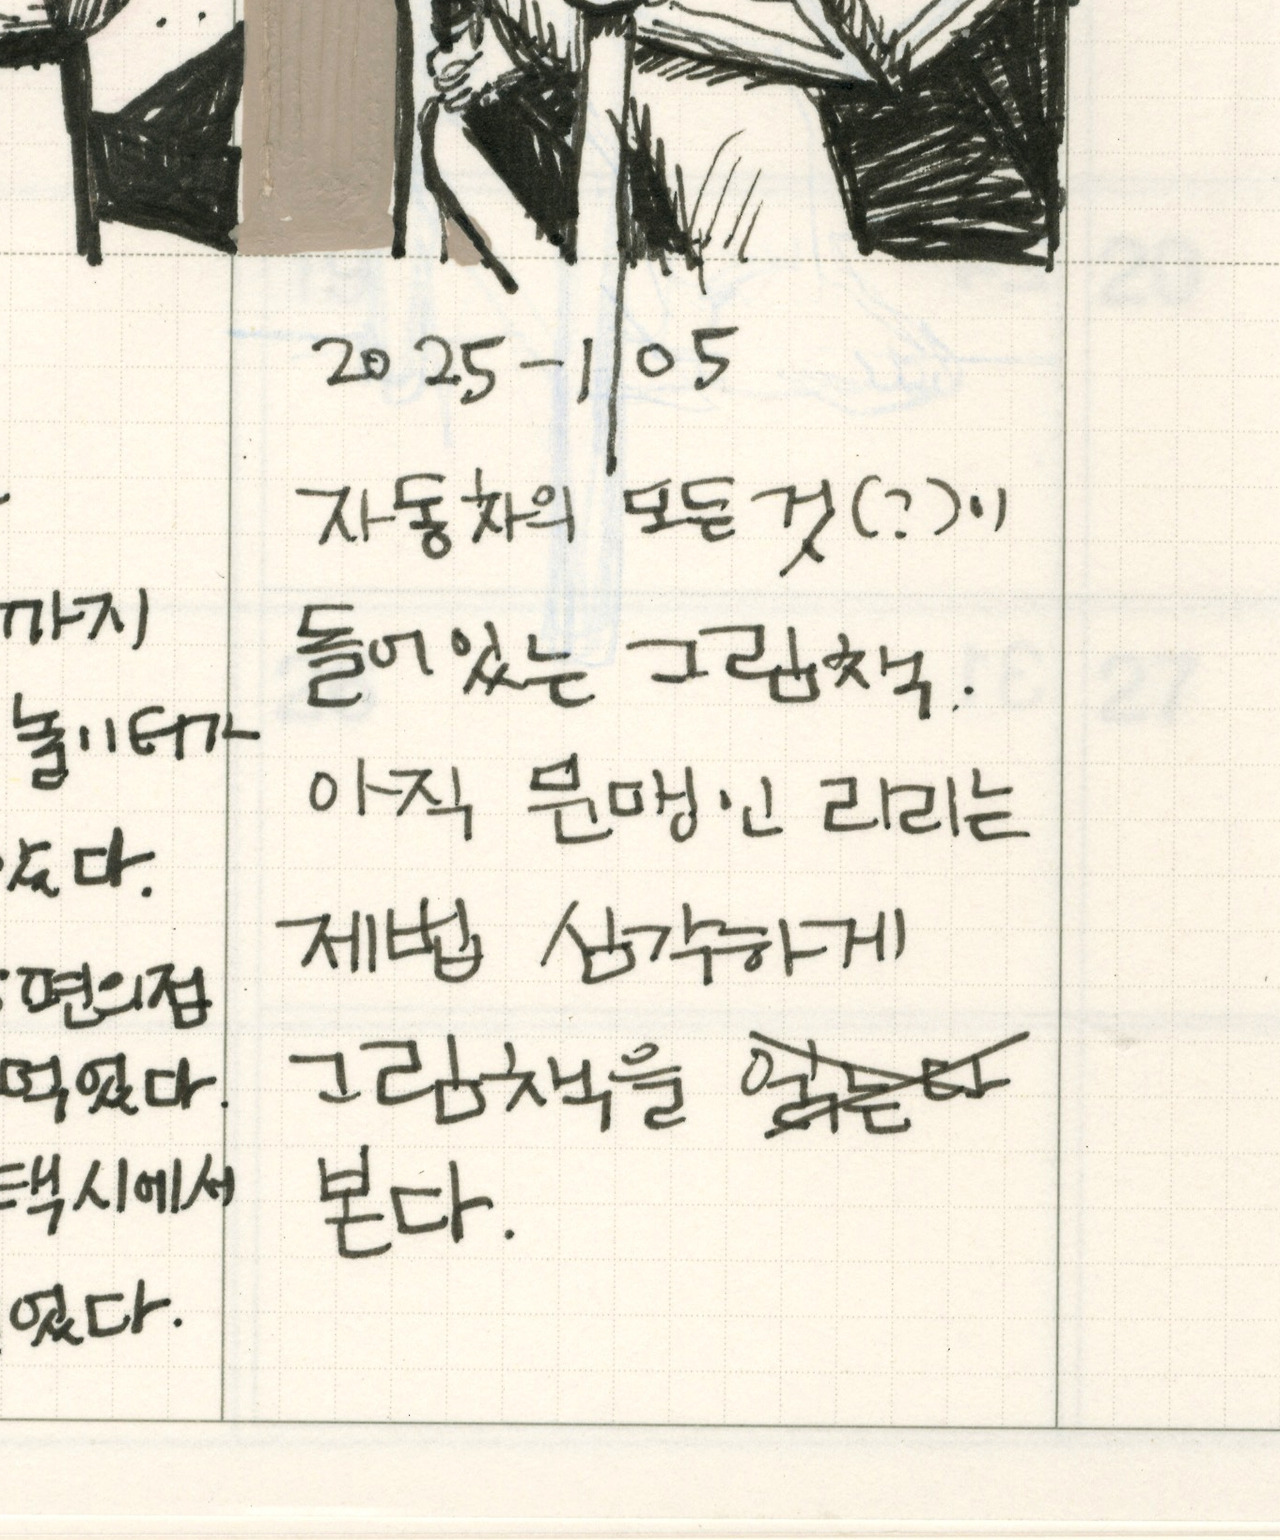 까지
놀이터가
았다.
편의점
먹었다.
택시에서
었다.
2025-1 05
자동차의 모든것(?)이
들어있는 그림책.
아직 문맹인 리리는
제법 심각하게
그림책을 읽는다
본다.